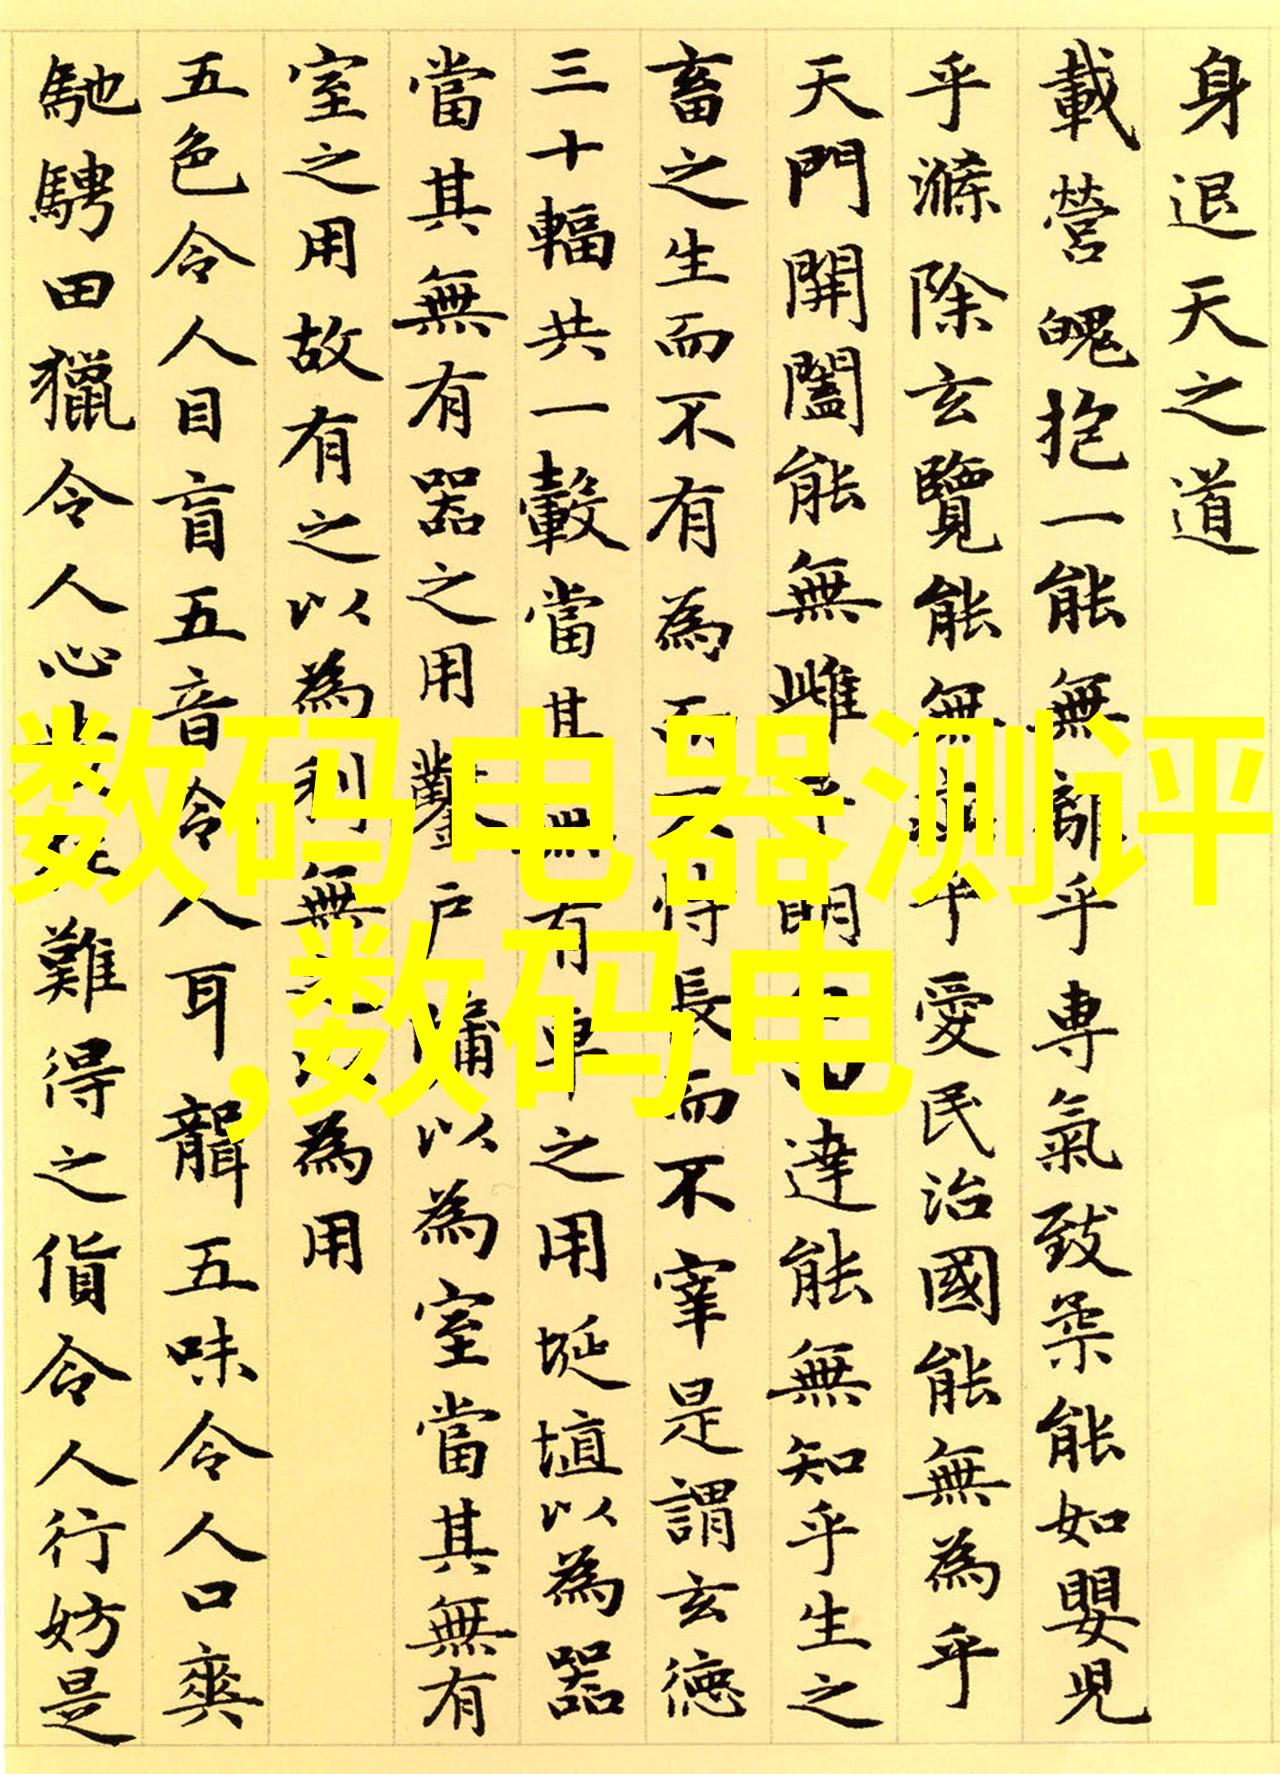 身退天之道
載營魄抱一能無離乎専氣致柔能如嬰兒
乎滌除玄覽能無疵乎愛民治國能無為乎
天門開闔能無雌乎明達能無知乎生之
畜之生而不有為而不恃長而不宰是謂玄德
三十輻共一轂當其無有車之用埏埴以為器
當其無有器之用鑿戶牖以為室當其無有
室之用故有之以為利無之以為用
五色令人目盲五音令人耳聾五味令人口爽
馳騁田獵令人心難得之貨令人行妨是
数码电器测评
,数码电